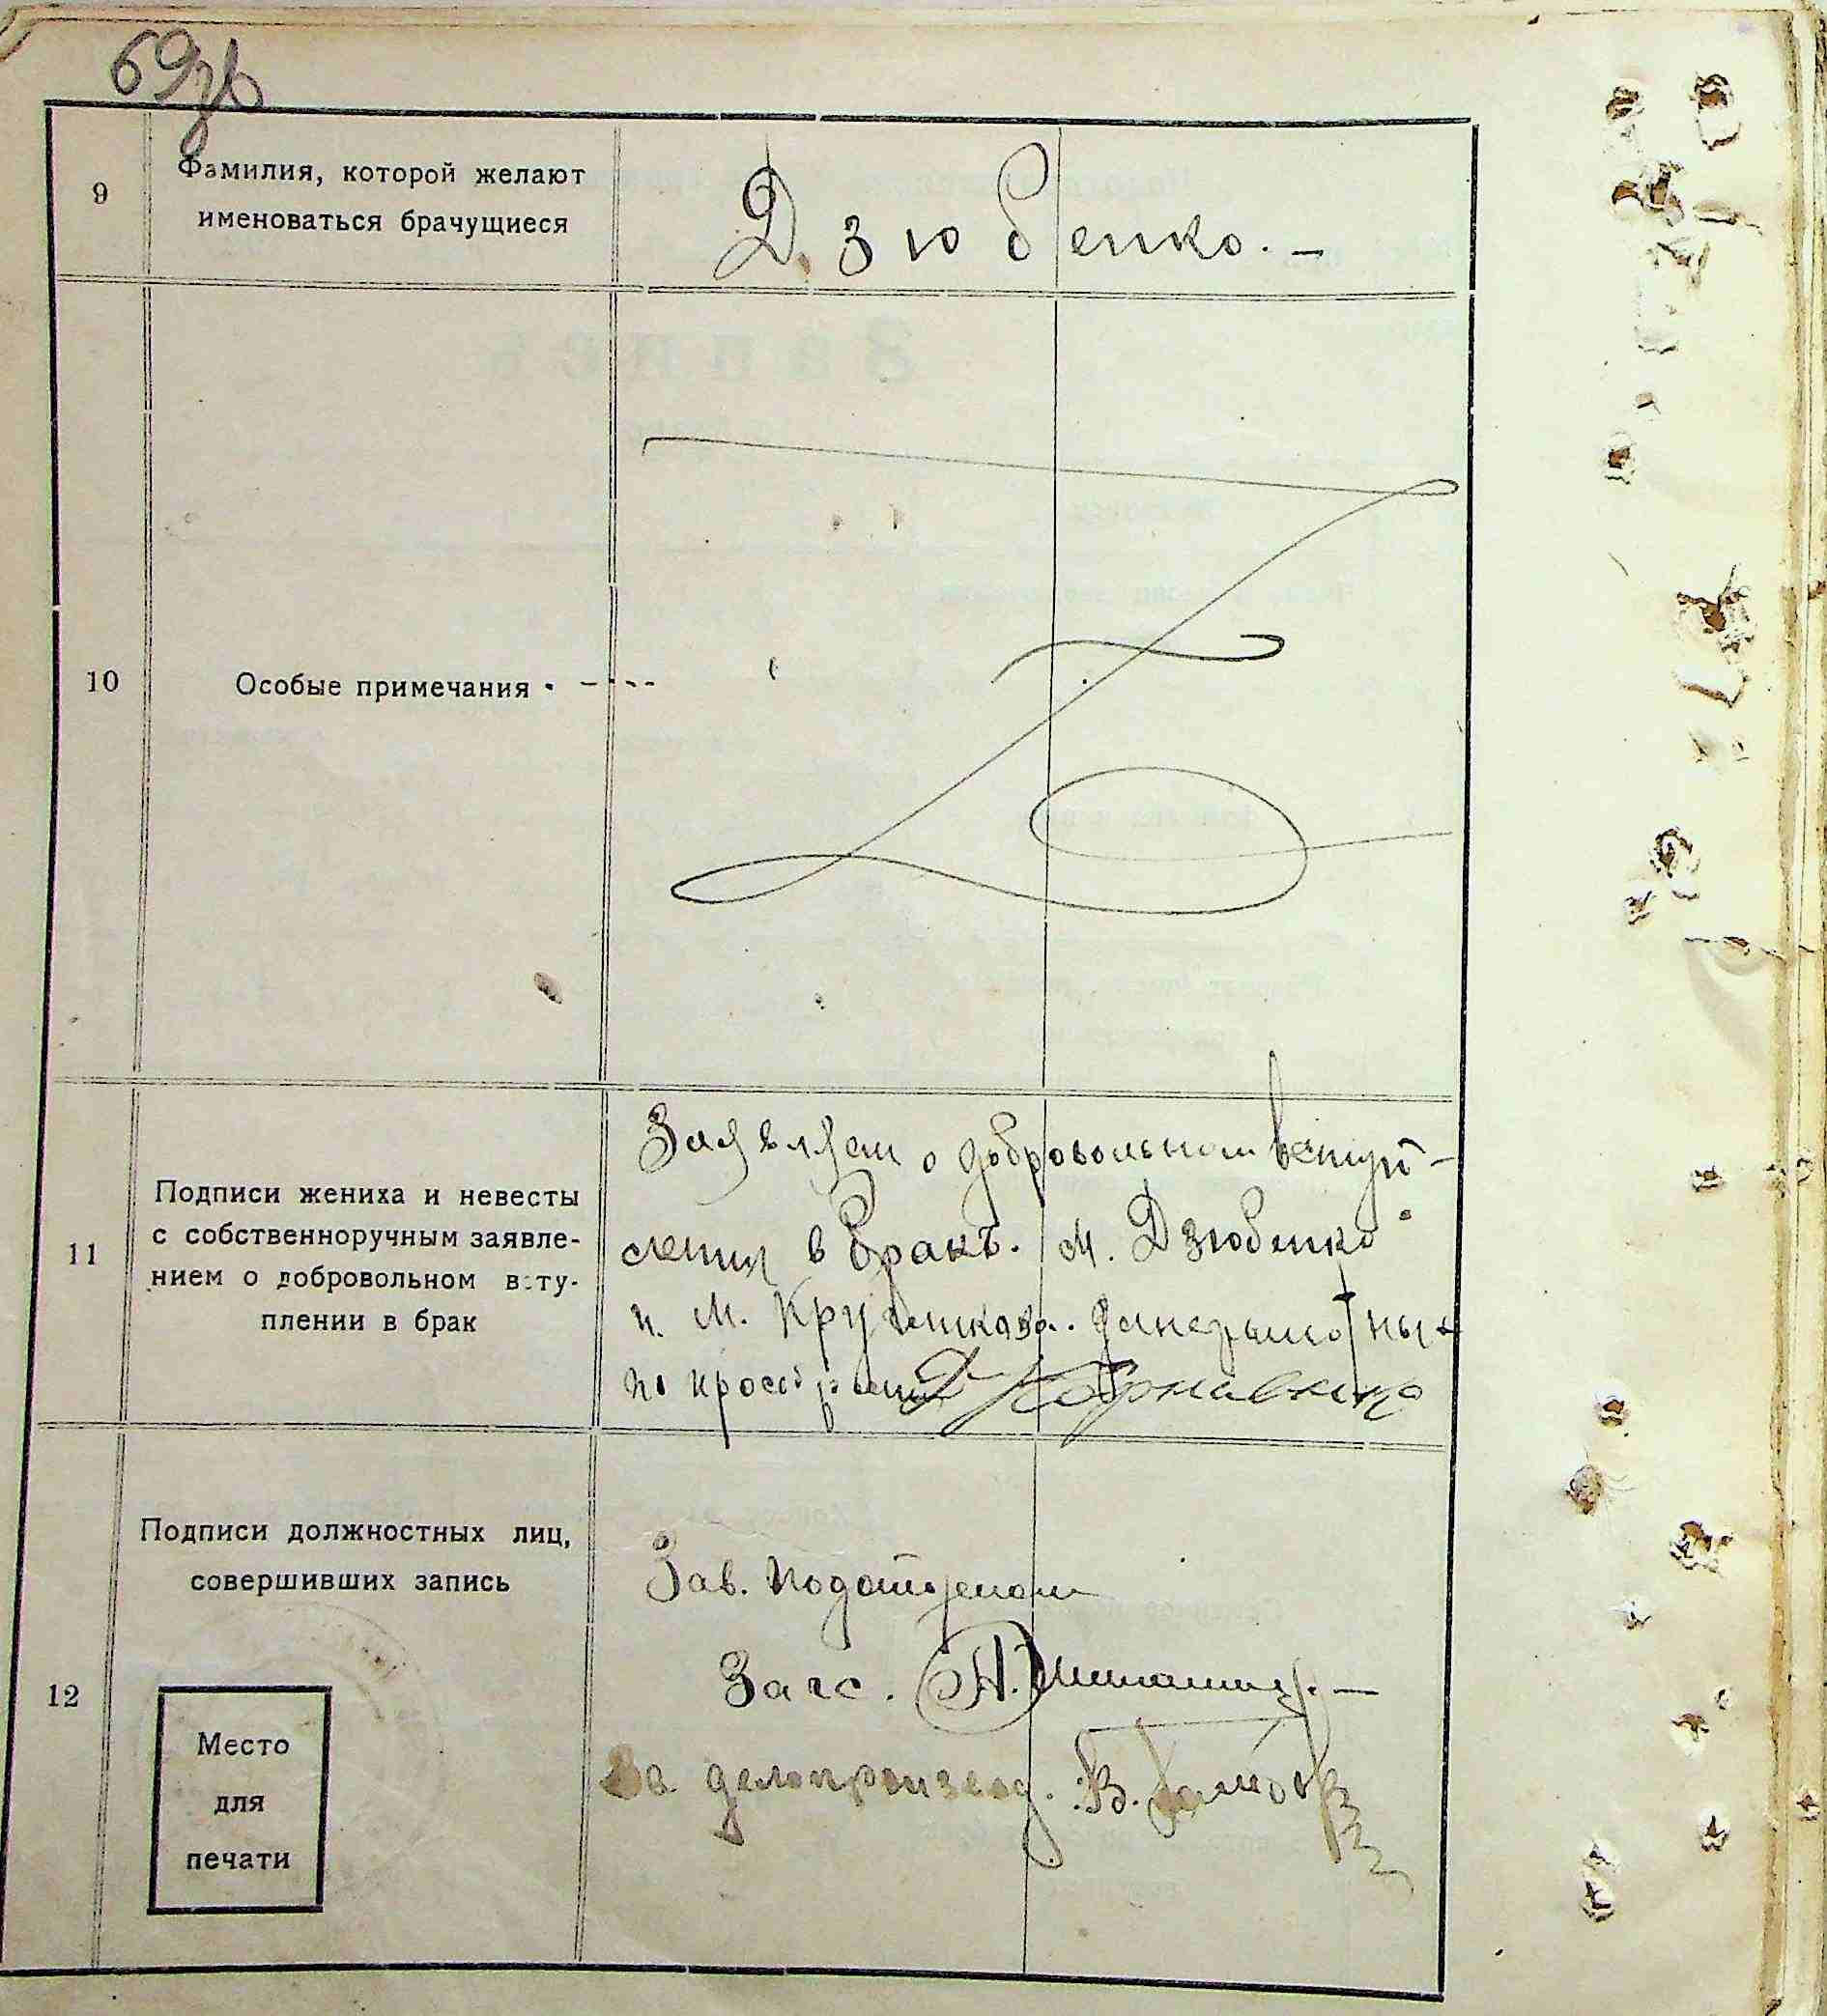 69зв
9
Фамилия, которой желают
именоваться брачущиеся
Дзюбенко. —
10
Особые примечания
11
Подписи жениха и невесты
с собственноручным заявле-
нием о добровольном всту-
плении в брак
Заявляем о добровольном вступ-
лении в бракъ. М. Дзюбенко
и М.
по
12
Подписи должностных лиц,
совершивших запись
Зав. Подотделом
Загс. А.
За делопроизвод. В.
Место
для
печати